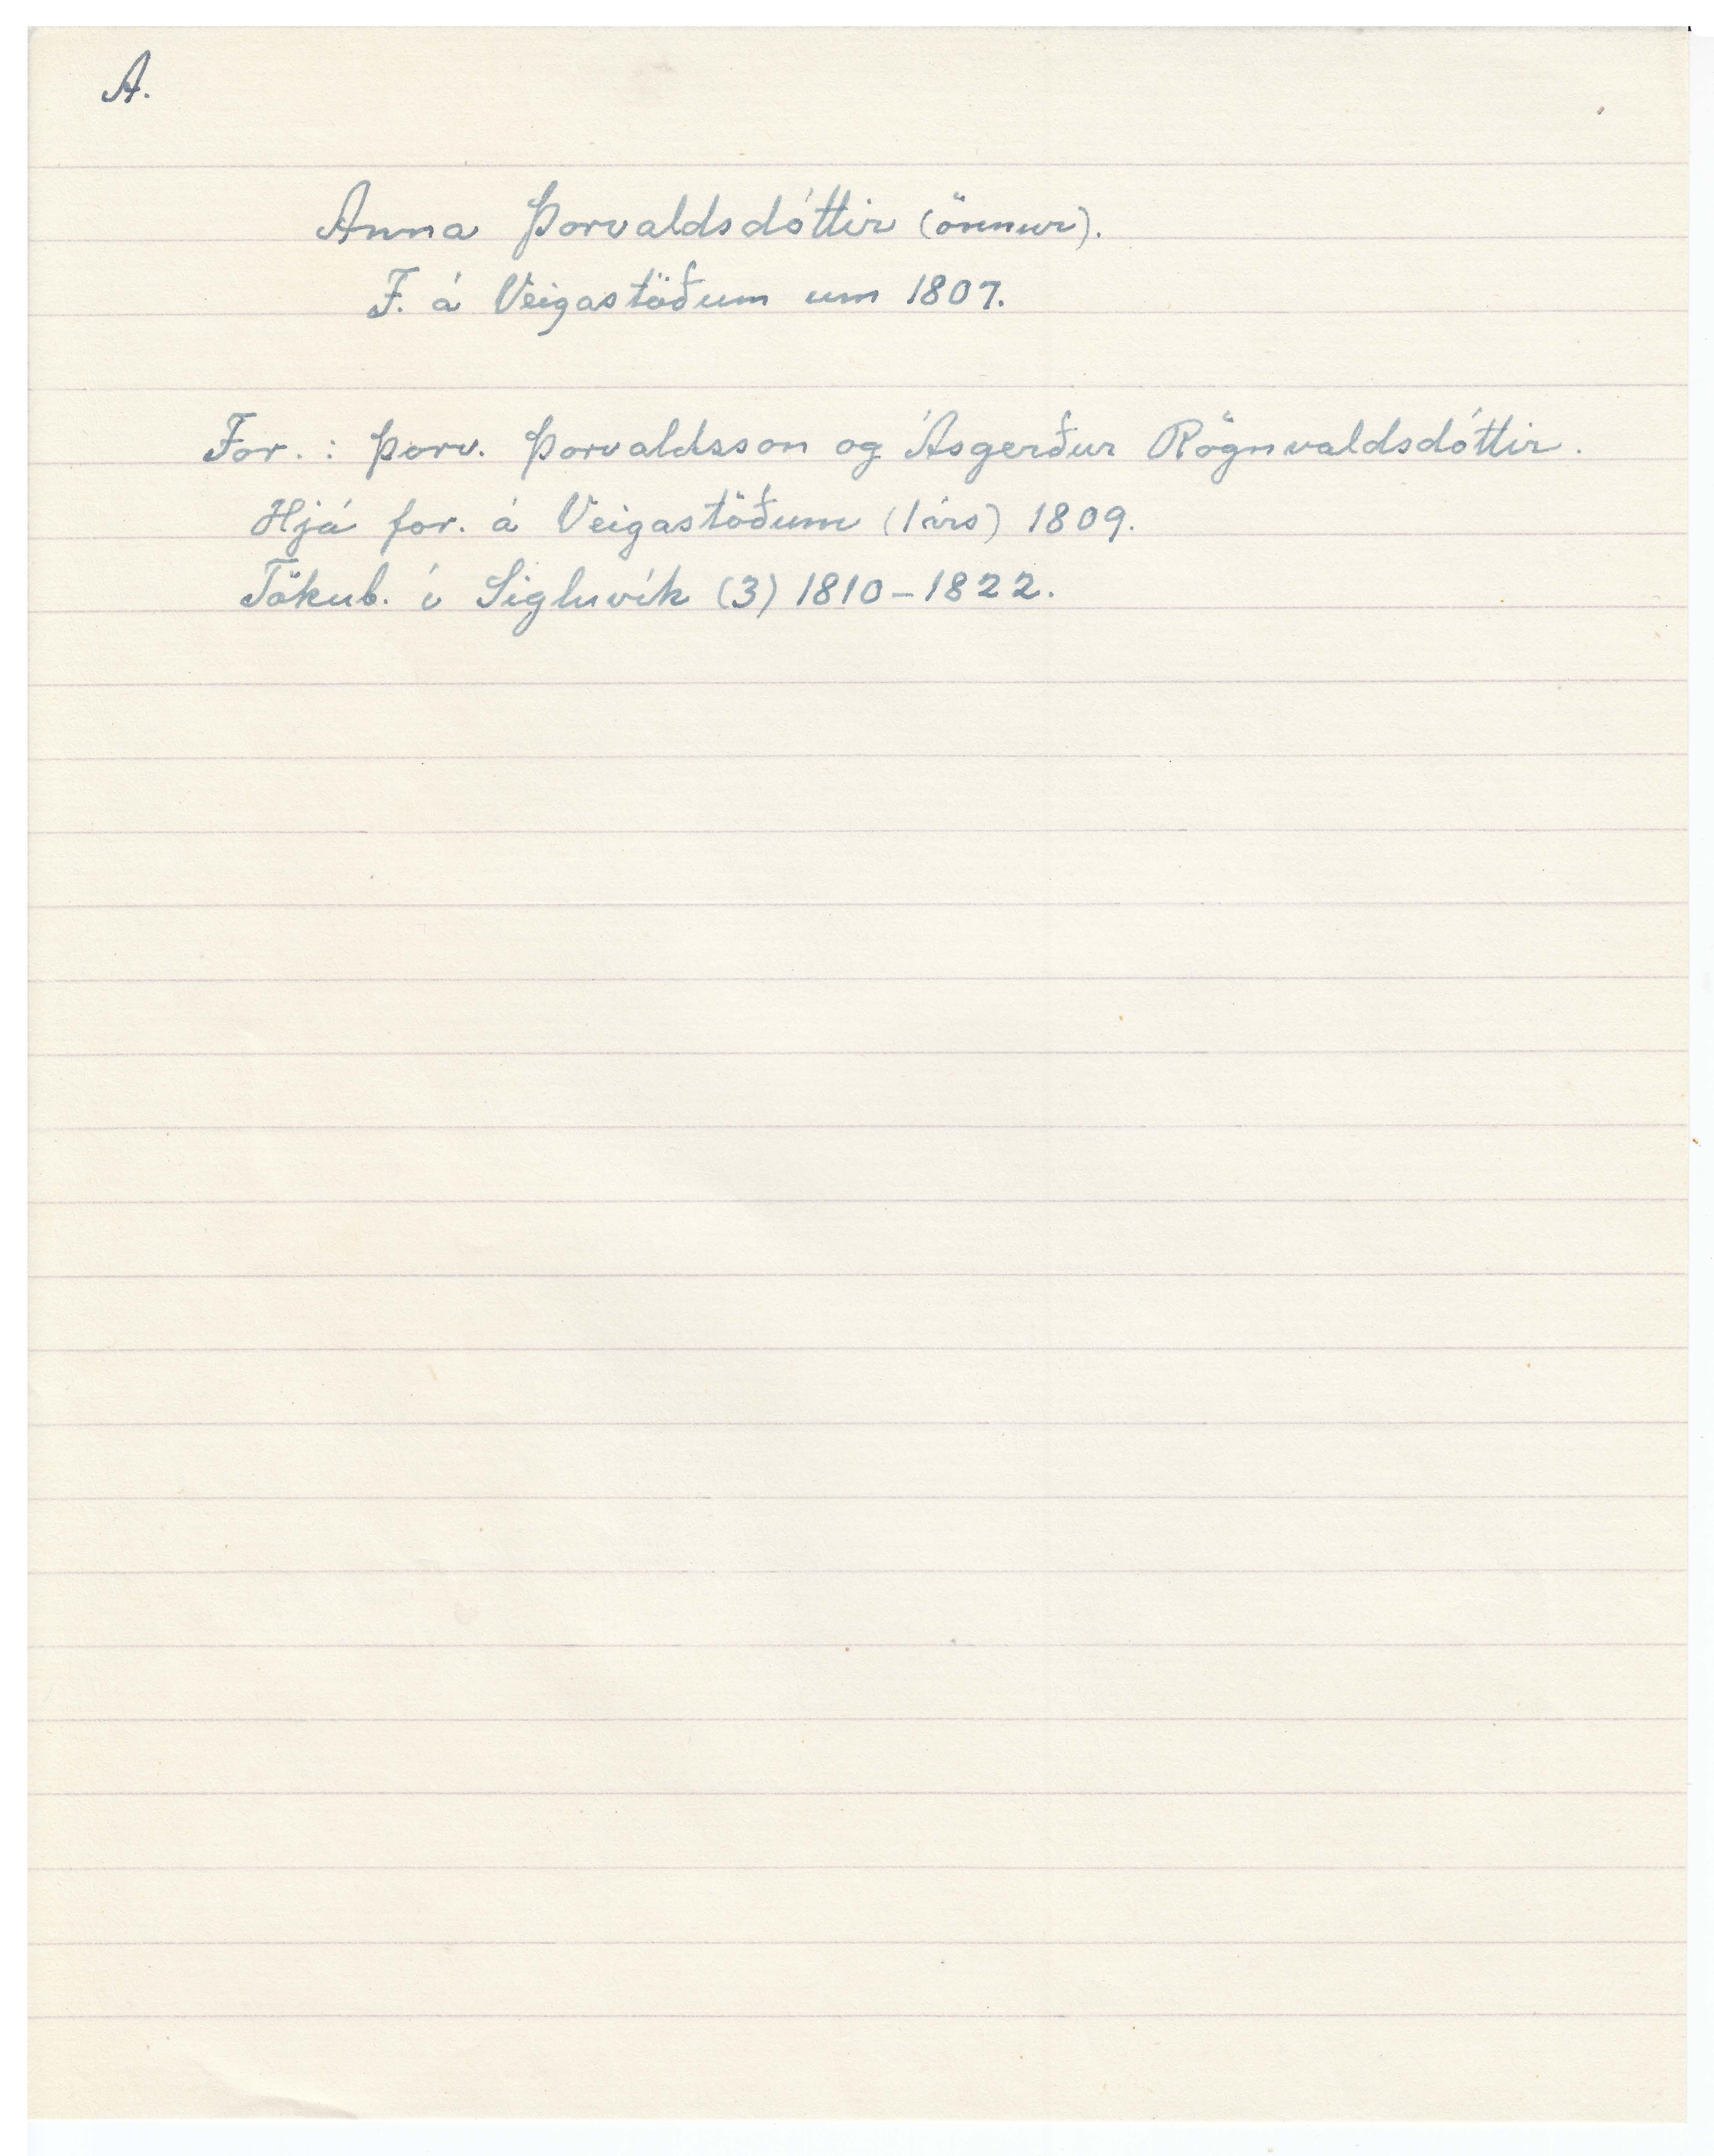 A.
Anna Þorvaldsdóttir (önnur).
F. á Veigastöðum um 1807.
For.: Þorv. Þorvaldsson og Ásgerður Rögnvaldsdóttir.
Hjá for. á Veigastöðum (1 árs) 1809.
Tökub. í Sigluvík (3) 1810-1822.